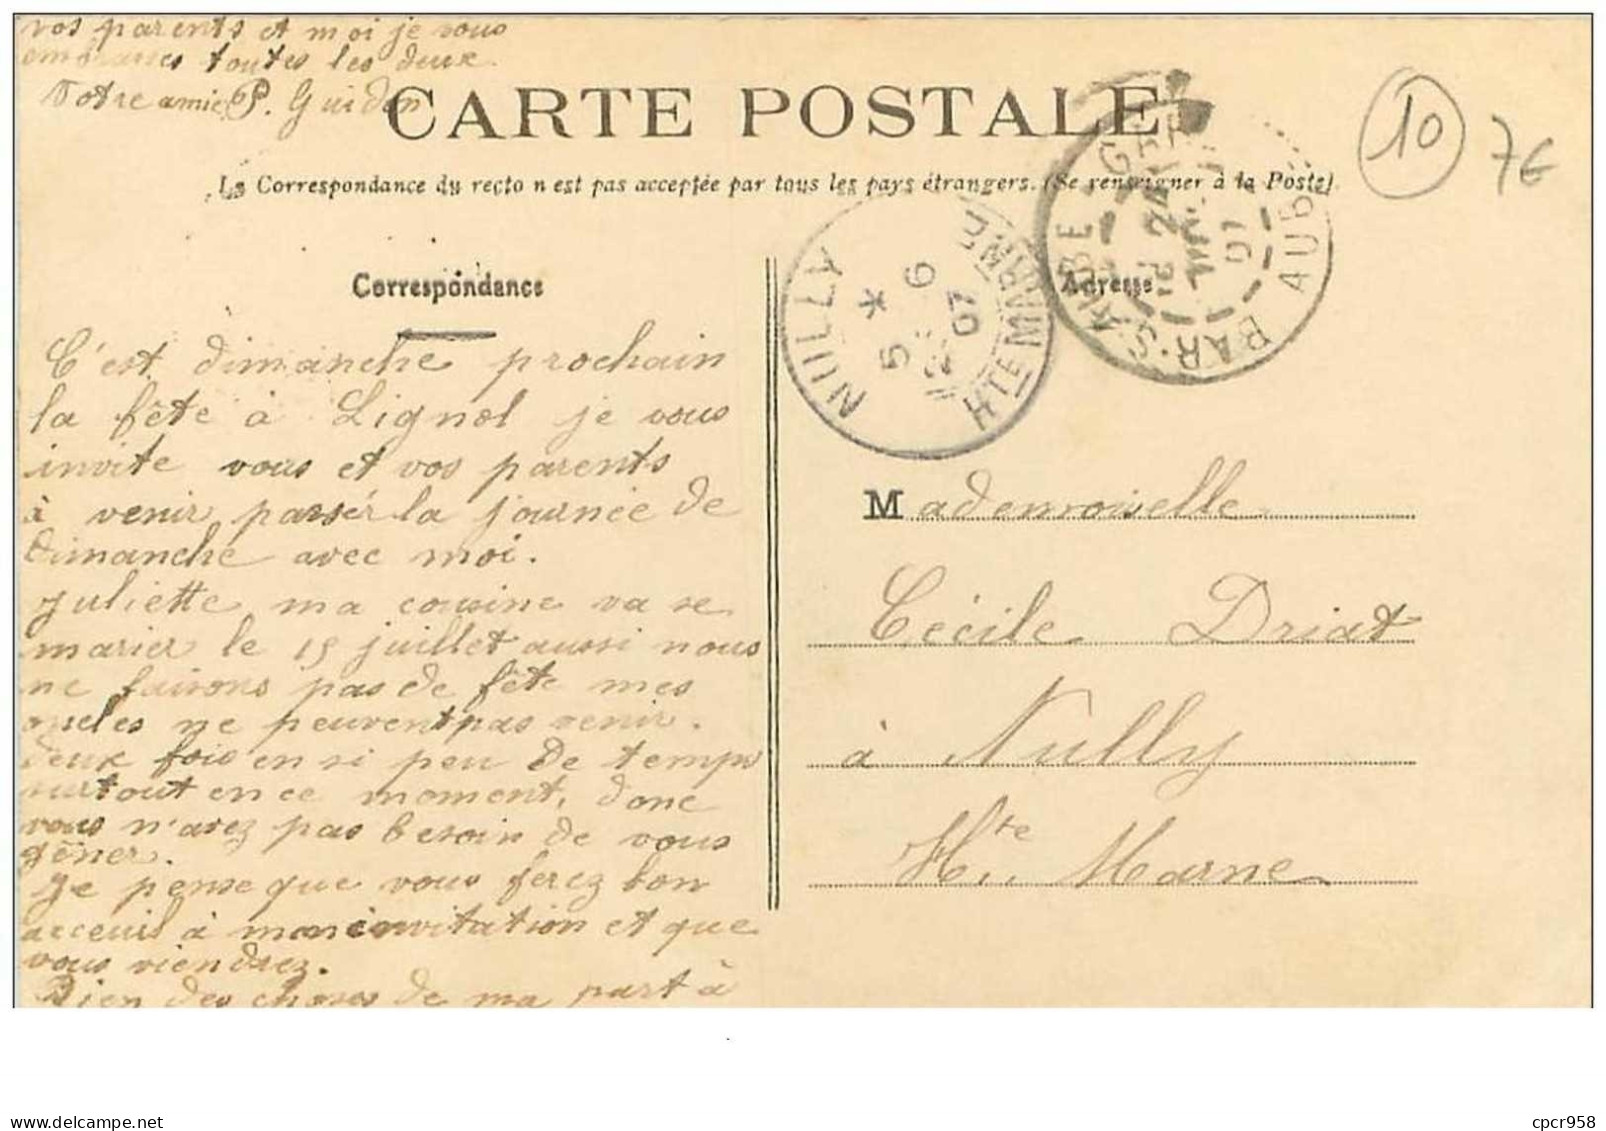 CARTE POSTALE
La Correspondance du recto n est pas acceptée par tous les pays étrangers. (Se renseigner à la Poste)
10
7€
NULLY
5 * 6
07
HTE MARNE
BAR-S-AUBE
AUBE
07
Correspondance
Adresse
C'est dimanche prochain
la fête à Lignol je vous
invite vous et vos parents
à venir passer la journée de
dimanche avec moi.
Juliette ma cousine va se
marier le 15 juillet aussi nous
ne faisons pas de fête mes
oncles ne peuvent pas venir.
deux fois en si peu de temps
surtout en ce moment, donc
vous n'avez pas besoin de vous
gêner.
Je pense que vous ferez bon
acceuil à mon invitation et que
vous viendrez.
Bien des choses de ma part à
vos parents et moi je vous
embrasses toutes les deux
Votre amie P. Guidon
Mademoiselle
Cécile Driat
à Nully
Hte Marne
cpcr958